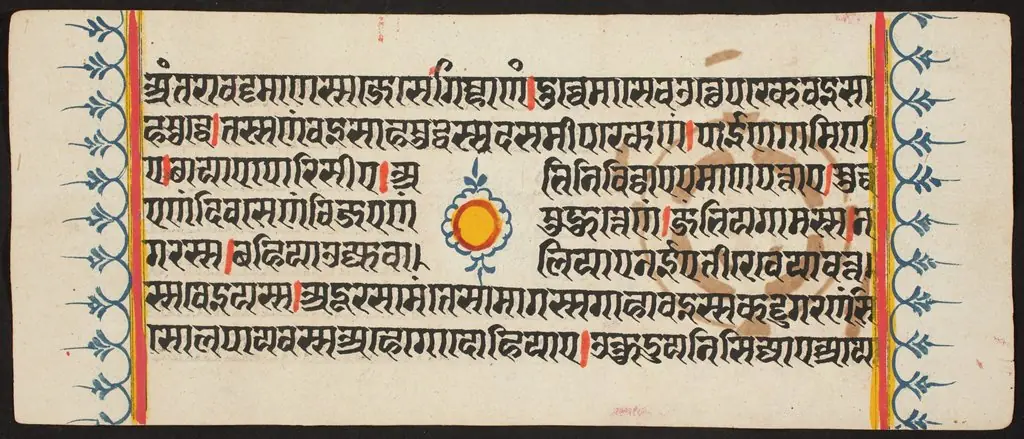 अंतरावट्टमाणस्स जे से गिम्हाणं।दुच्चे मासे चउत्थे पक्खे वइसा
हसुद्धे।तस्स णं वइसाहसुद्धस्स दसमीपक्खेणं।पाईणगामिणी
ए।छायाए पोरिसीए।अभिनिविट्टाए पमाणपत्ताए।सुव्व
एणं दिवसेणं विजएणं मुहुत्तेणं।जंभियगामस्स।न
गरस्स।बहिया उज्जुवालियाए नईए तीरे वेयावत्त
स्स चेइयस्स।अदूरसामंते सामागस्स गाहावइस्स कट्ठकरणंसि
सालपायवस्स अहे गोदोहियाए।उक्कुडुयनिसिज्जाए आया